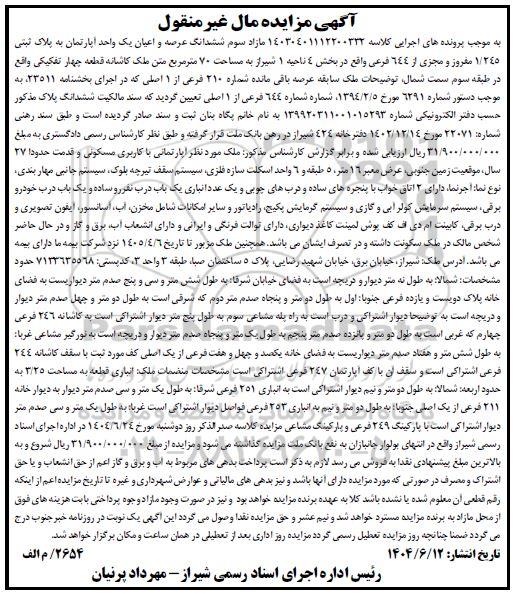 آگهی مزایده مال غیر منقول
به موجب پرونده های اجرایی کلاسه ۱۴۰۳۰۴۰۱۱۱۲۲۰۰۳۳۲ مازاد سوم ششدانگ عرصه و اعیان یک واحد آپارتمان به پلاک ثبتی
۱/۲۴۵ مفروز و مجزی از ۶۴۴ فرعی واقع در بخش ۴ ناحیه ۱ شیراز به مساحت ۷۰ مترمربع متن ملک کاشانه قطعه چهار تفکیکی واقع
در طبقه سوم سمت شمال، توضیحات ملک سابقه عرصه باقی مانده شماره ۲۱۰ فرعی از ۱ اصلی که در اجرای بخشنامه ۲۳۵۱۱، به
موجب دستور شماره ۶۲۹۱ مورخ ۱۳۹۴/۲/۵، شماره شماره ۶۴۴ فرعی از ۱ اصلی تعیین گردید که سند مالکیت ششدانگ پلاک مذکور
حسب دفتر الکترونیکی شماره ۱۳۹۹۲۰۳۱۱۰۰۱۰۱۵۲۹۳ به نام خانم پگاه بنان ثبت و سند صادر گردیده است و طبق سند رهنی
شماره: ۲۲۰۷۱ مورخ ۱۴۰۲/۱۲/۱۴ دفترخانه ۴۲۴ شیراز در رهن بانک ملت قرار گرفته و طبق نظر کارشناس رسمی دادگستری به مبلغ
۳۱/۹۰۰/۰۰۰/۰۰۰ ریال ارزیابی شده و برابر گزارش کارشناس مذکور: ملک مورد نظر آپارتمانی با کاربری مسکونی و قدمت حدودا ۲۷
سال، موقعیت زمین جنوبی، عرض معبر ۱۶ متر، ۵ طبقه و ۶ واحد اسکلت سازه فلزی، سیستم سقف تیرچه بلوک، سیستم جانبی مهار بندی،
نوع نما: آجرنما، دارای ۲ اتاق خواب با پنجره های ساده و درب های چوبی و یک عدد انباری یک باب درب نفررو ساده و یک باب درب خودرو
برقی، سیستم سرمایش کولر آبی و گازی و سیستم گرمایش پکیج، رادیاتور و سایر امکانات شامل مخزن، آب، آسانسور، آیفون تصویری و
درب برقی، کابینت ام دی اف کف پوش لمینت کاغذ دیواری، دارای توالت فرنگی و ایرانی و دارای انشعاب آب، برق و گاز و در حال حاضر
شخص مالک در ملک سکونت داشته و در تصرف ایشان می باشد. همچنین ملک مزبور تا تاریخ ۱۴۰۵/۴/۶ نزد شرکت بیمه ما دارای بیمه
می باشد. آدرس ملک: شیراز، خیابان برق، خیابان شهید رضایی، پلاک ۵ ساختمان صبا، طبقه ۳ واحد ۳، کدپستی: ۷۱۳۳۶۳۵۵۶۸ حدود
مشخصات: شمالا: به طول نه متر دیوار و دریچه است به فضای خیابان شرقا: به طول شش متر و سی و پنج صدم متر دیواریست به فضای
خانه پلاک دویست و یازده فرعی جنوبا: اول به طول دو متر و پنجاه صدم متر دوم که شرقی است به طول دو متر و چهل صدم متر دیوار
و دریچه است به توضیحا دیوار اشتراکی و درب است به راه پله مشاعی سوم به طول پنج متر دیوار اشتراکی است به کاشانه ۲۴۶ فرعی
چهارم که غربی است به طول دو متر و پانزده صدم متر پنجم به طول یک متر و پنجاه صدم متر دیوار و دریچه است به نورگیر مشاعی غربا:
به طول شش متر و هفتاد صدم متر دیواریست به فضای خانه یکصد و چهل و هفت فرعی از یک اصلی کف مورد ثبت با سقف کاشانه ۲۴۴
فرعی اشتراکی است و سقف آن با کف آپارتمان ۲۴۷ فرعی اشتراکی است مشخصات منضمات ملک: انباری قطعه به مساحت ۲/۲۵ به
حدود اربعه: شمالا: به طول دو متر و نیم دیوار اشتراکی است به انباری ۲۵۱ فرعی شرقا: به طول یک متر و سی صدم متر دیوار به دیوار خانه
۲۱۱ فرعی از یک اصلی جنوبا: به طول دو متر و نیم به انباری ۲۵۳ فرعی فواصل دیوار اشتراکی است غربا: به طول یک متر و سی صدم متر
دیوار اشتراکی است با پارکینگ ۲۴۹ فرعی و پارکینگ مشاعی مزایده کلاسه صدرالذکر روز دوشنبه مورخ ۱۴۰۴/۶/۲۴ در اداره اجرای اسناد
رسمی شیراز واقع در انتهای بولوار جانبازان به نفع بانک ملت مزایده گذاشته می شود و مزایده از مبلغ ۳۱/۹۰۰/۰۰۰/۰۰۰ ریال شروع و به
بالاترین مبلغ پیشنهادی نقدا به فروش می رسد لازم به ذکر است پرداخت بدهی های مربوط به آب و برق و گاز اعم از حق انشعاب و یا حق
اشتراک و مصرف در صورتی که مورد مزایده دارای آنها باشد و نیز بدهی های مالیاتی و عوارض شهرداری و غیره تا تاریخ مزایده اعم از اینکه
رقم قطعی آن معلوم شده یا نشده باشد کلا به عهده برنده مزایده خواهد بود و نیز در صورت وجود مازاد وجوه پرداختی بابت هزینه های فوق
از محل مازاد به برنده مزایده مسترد خواهد شد و نیم عشر و حق مزایده نقدا وصول می گردد این آگهی یک نوبت در روزنامه خبر جنوب درج
می گردد ضمنا چنانچه روز مزایده تعطیل رسمی گردد مزایده روز اداری بعد از تعطیلی در همان ساعت و مکان برگزار خواهد شد.
تاریخ انتشار: ۱۴۰۴/۶/۱۲
۲۶۵۴/ م الف
رئیس اداره اجرای اسناد رسمی شیراز - مهرداد پرنیان